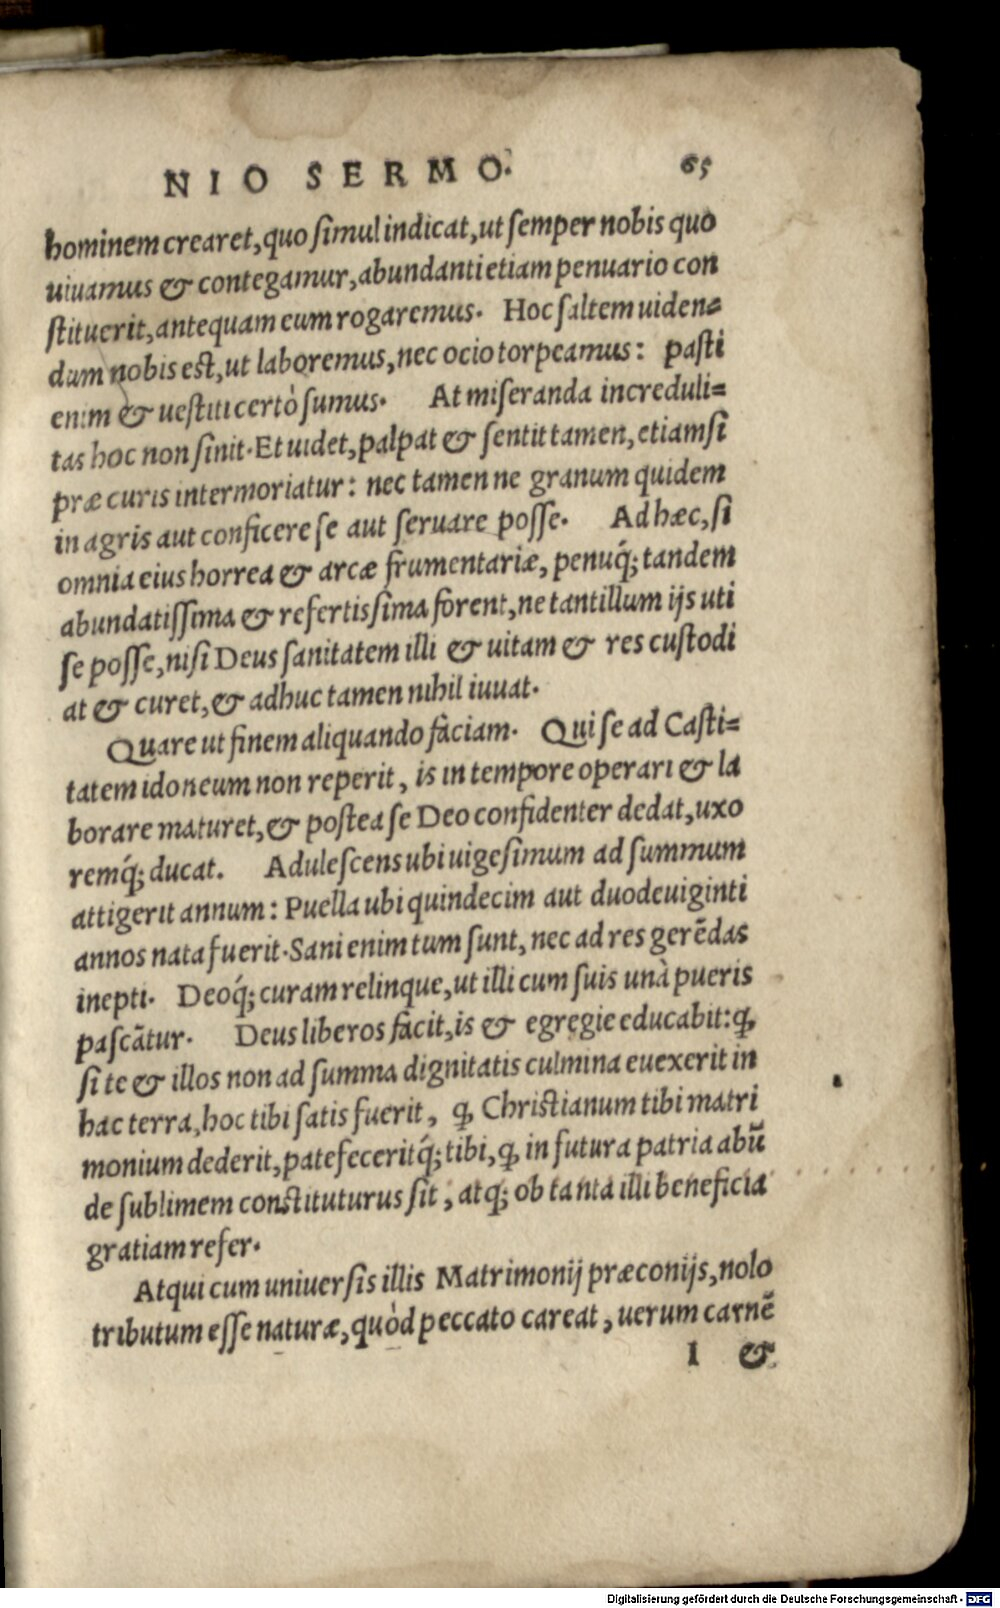 NIO SERMO. 65
hominem crearet, quo simul indicat, ut semper nobis quo
uiuamus & contegamur, abundanti etiam penuario con
stituerit, antequam eum rogaremus. Hoc saltem uiden=
dum nobis est, ut laboremus, nec ocio torpeamus: pasti
enim & uestiti certò sumus. At miseranda increduli=
tas hoc non sinit. Et uidet, palpat & sentit tamen, etiamsi
præ curis intermoriatur: nec tamen ne granum quidem
in agris aut conficere se aut seruare posse. Ad hæc, si
omnia eius horrea & arcæ frumentariæ, penuq́; tandem
abundatissima & refertissima forent, ne tantillum ijs uti
se posse, nisi Deus sanitatem illi & uitam & res custodi
at & curet, & adhuc tamen nihil iuuat.
Quare ut finem aliquando faciam. Qui se ad Casti=
tatem idoneum non reperit, is in tempore operari & la
borare maturet, & postea se Deo confidenter dedat, uxo
remq́; ducat. Adulescens ubi uigesimum ad summum
attigerit annum: Puella ubi quindecim aut duodeuiginti
annos nata fuerit. Sani enim tum sunt, nec ad res gerẽdas
inepti. Deoq́; curam relinque, ut illi cum suis unà pueris
pascãtur. Deus liberos facit, is & egregie educabit: ꝙ
si te & illos non ad summa dignitatis culmina euexerit in
hac terra, hoc tibi satis fuerit, ꝙ Christianum tibi matri
monium dederit, patefeceritq́; tibi, ꝙ in futura patria abũ
de sublimem constituturus sit, atq; ob tanta illi beneficia
gratiam refer.
Atqui cum uniuersis illis Matrimonij præconijs, nolo
tributum esse naturæ, quòd peccato careat, uerum carnẽ
I &
Digitalisierung gefördert durch die Deutsche Forschungsgemeinschaft - DFG